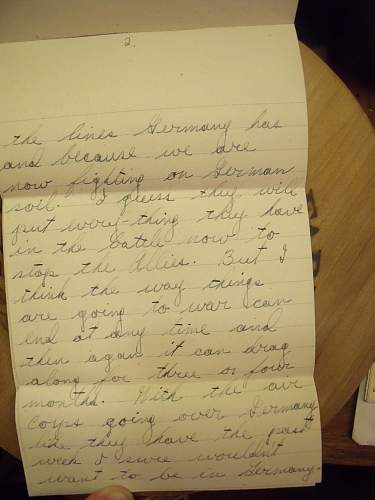 2.
the lines Germany has
and because we are
now fighting on German
soil. I guess they will
put every-thing they have
in the battle now to
stop the Allies. But I
think the way things
are going to war can
end at any time and
then again it can drag
along for three or four
months. With the air
Corps going over Germany
like they have the past
week I sure wouldn't
want to be in Germany.